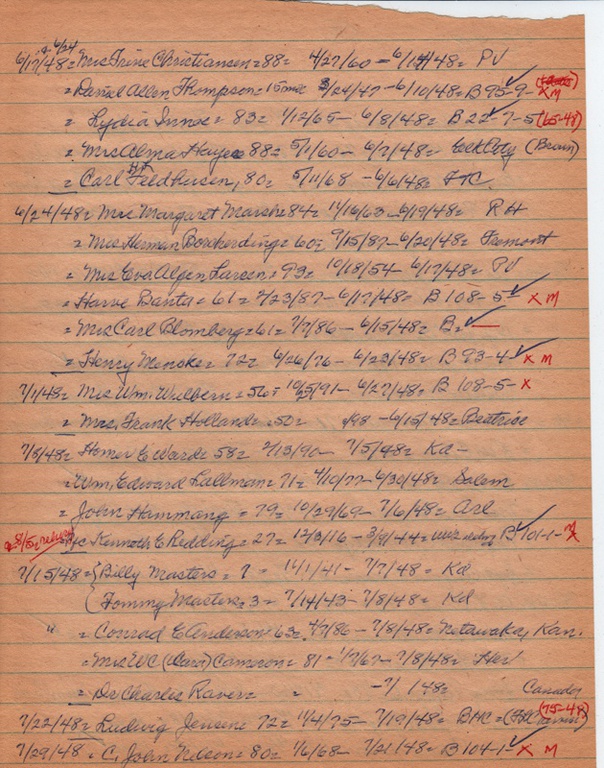 & 6/24
6/17/48 = Mrs Trine Christiansen = 88 = 4/27/60 - 6/14/48 = PV
= Daniel Allen Thompson = 15mos 3/24/47 - 6/10/48 = B 95-9- X M
= Lydia = 83 = 1/12/65 - 6/8/48 = B 22-7-5 (65-48)
= Mrs Alma Hayes 88 = 5/1/60 - 6/7/48 = Elk City (Brown)
= Carl Feldhusen, 80 = 5/11/68 - 6/6/48 FTC.
6/24/48 = Mrs Margaret Marsh = 84 = 11/16/63 - 6/19/48 = RH
= Mrs Herman Borcherding = 60 = 9/15/87 - 6/20/48 = Fremont
= Mrs Eva Larsen = 93 = 10/18/54 - 6/17/48 = PV
= Harve Banta = 61 = 2/23/87 - 6/17/48 = B 108-5 X M
= Mrs Carl Blomberg = 61 = 7/7/86 - 6/15/48 = B =
= Henry Mencke = 72 = 6/26/76 - 6/23/48 = B 93-4 X M
7/1/48 = Mrs Wm. Wulbern = 56 = 10/25/91 - 6/27/48 = B 108-5- X
= Mrs. Frank Holland = 50 = /98 - 6/15/48 = Beatrice
7/8/48 = Homer E Ward = 58 = 2/13/90 - 7/5/48 = Kd -
= Wm. Edward Lallman = 71 = 4/10/77 - 6/30/48 = Salem
= John Hammang = 79 = 10/29/69 - 7/6/48 = Arl
Kenneth E Redding = 27 = 12/3/16 - 3/9/44 B 101-1- X
7/15/48 = { Billy Masters = ? = 11/1/41 - 7/7/48 = Kd
{ Tommy Masters = 3 = 7/14/43 - 7/8/48 = Kd
" = Conrad E Anderson = 63 = 4/7/86 - 7/8/48 = Netawaka, Kan.
= Mrs WC (Carol) Cameron = 81 - 1/7/67 - 7/8/48 = Her'
= Dr Charles Raver = = -7/ /48 =
7/22/48 = Ludwig Jensen 72 = 11/4/75 - 7/19/48 = BHC = (75-48)
7/29/48 = C, John Nelson = 80 = 1/6/68 - 7/21/48 = B 104-1- X M